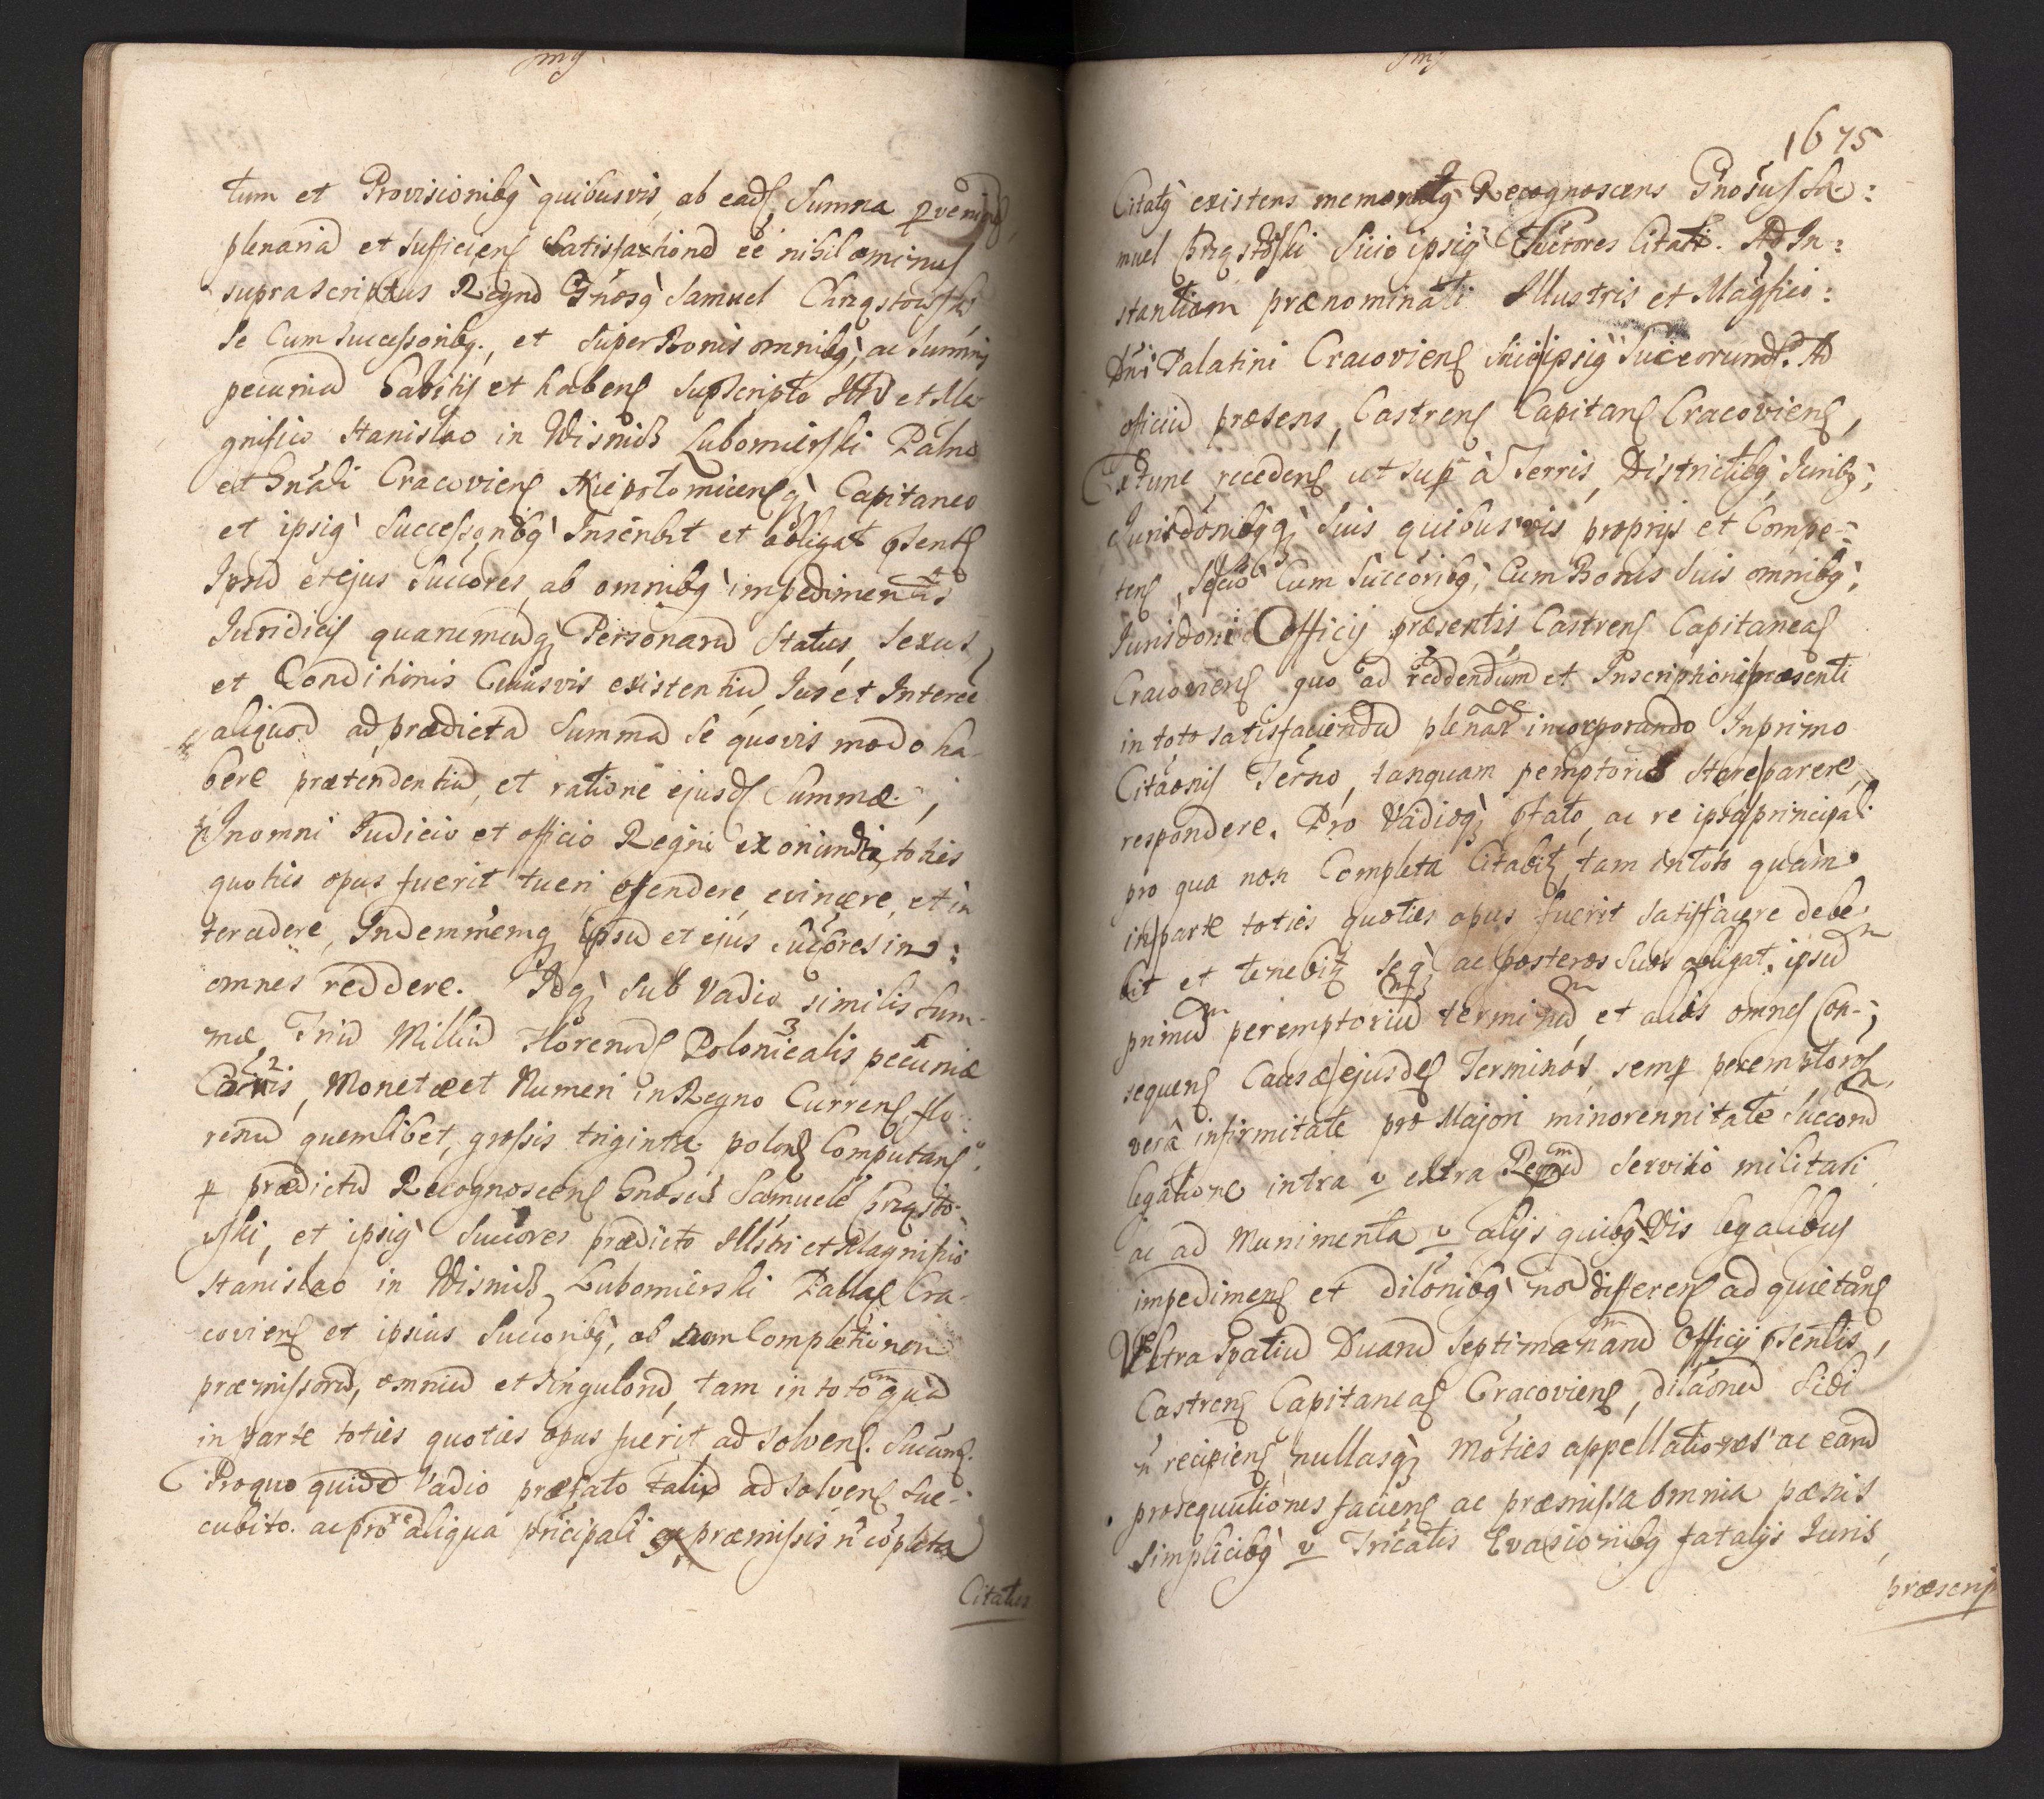 tum et Provisionibq quibusvis, ab ead, Summa
plenaria et sufficien Satisfactiond ee nihilominus
suprascriptus Regnd Gnosq Samuel Chrząstowski
Se Cum Successoribq, et Super Bonis omnibq, ac Summis
pecunia habitis et haben supscripto Illri et Ma
gnifico Stanislao in Wisnicz Lubomierski Palno
et Gnali Cracovien Niepolomicen q Capitaneo
et ipsiq Successoribq Inscribit et obligat
Ipsu et ejus Succores, ab omnibq impedimentis
Juridicis quarumcunq Personaru Status, Sexus,
et Conditionis Cujusvis existentiu, Jus et Interee
aliquod ad prædicta Summa Se quovis modo ha-
bere prætendentiu, et ratione ejusd Summæ,
In omni Judicio et officio Regni ex oriundis, toties
quoties opus fuerit tueri, evincere, et in
tercedere, Indemnemq ipsu et ejus Succores in
omnes reddere. Idq Sub Vadio similis Sum-
mæ, Triu Milliu Florenor Polonicalis pecuniæ
, Monetæ et Numeri in Regno Curren, flo-
renu quemlibet, grossis triginta polon Computan,
p prædictu Recognoscen Gnosu Samuele Chrząsto-
wski, et ipsiq Succores prædicto Illstri et Magnifico
Stanislao in Wisnicz Lubomierski Pallno Cra-
covien et ipsius Succoribq, ob non Completionem
præmissoru, omniu et singuloru, tam in toto qua
in parte toties quoties opus fuerit ad solven. Succum.
Pro quo quide Vadio præfato talir ad solven suc-
cubito. ac pro re aliqua pricipali ex præmissis n copleta
Citatus
1675
Citatq existens memoratq Recognoscens Gnosus Sa:
muel Chrząstowski Sicio ipsiq Succores Citati. Ad In:
stantiam prænominati Illustris et Magfici:
Dni Palatini Cracovien Sicio ipsiq Succorum. Ad
officiu præsens, Castren Capitan Cracovien,
Extunc receden ut sup à Terris, Districtibq, Juribq,
Jurisdonibq q suis quibusvis proprijs et Compe-
ten, Secio Cum Succoribq, Cum Bonis suis omnibq,
Jurisdoni Officij præsentis Castren Capitaneal
Cracovien quo ad reddendum et Inscriptioni præsenti
in toto satisfaciendu plenarie incorporando In primo
Citaonis Terno, tanquam pemptorio Stare parere,
respondere, Pro Vadioq ac re ipsa principali
pro qua non Completa Citabit, tam in toto quam
in parte toties quoties opus fuerit satisfacere debe-
bit et tenebit, seq ac posteros suos obligat, ipsu
primu peremptoriu terminu, et alios omnes Con-
sequen Causæ ejusde Terminos, semp peremptorio,
verâ infirmitate pro Majori minorennitate Succoru
legatione intra v extra Regnu Servitio militari
ac ad Munimenta v alijs quibq Vis legalibus
impedimen et dilonibq no differen ad quietan
Ultra Spatiu Duaru Septimanaru Officij
Castren Capitaneal Cracovien, dilaoned Sibi
n recipien nullasq Moties appellationes ac earu
prosequutiones facien ac præmissa omnia pænis
simplicibq v Tricatis Evasionibq fatalijs Juris,
præscrip